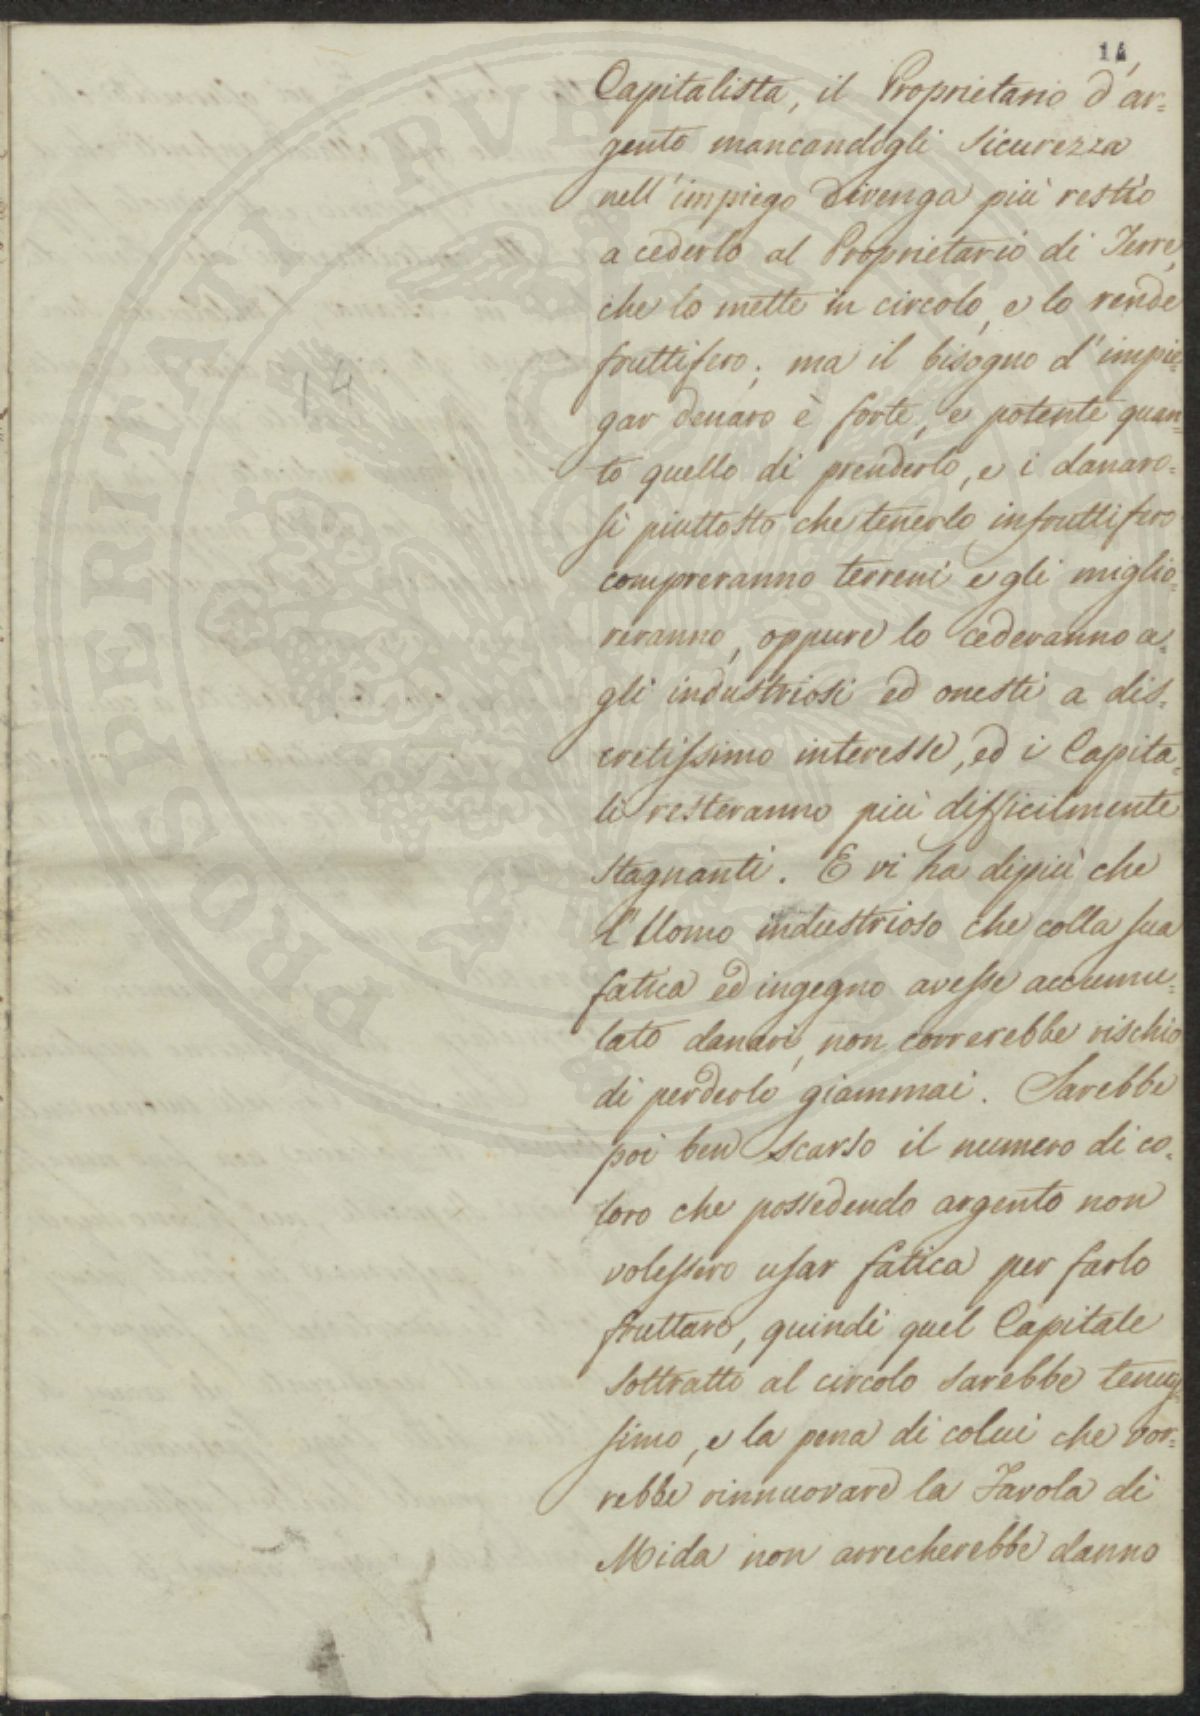 14
Capitalista, il Proprietario d'ar=
gento mancandogli sicurezza
nell'impiego divenga più restìo
a cederlo al Proprietario di Terre,
che lo mette in circolo, e lo rende
fruttifero; ma il bisogno d'impie=
gar denaro è forte, e potente quan=
to quello di prenderlo, e i danaro=
si piuttosto che tenerlo infruttifero
compreranno terreni e gli miglio=
reranno, oppure lo cederanno a=
gli industriosi ed onesti a dis=
cretissimo interesse, ed i Capita=
li resteranno più difficilmente
stagnanti. E vi ha dippiù che
l'Uomo industrioso che colla sua
fatica ed ingegno avesse accumu=
lato danari, non correrebbe rischio
di perderlo giammai. Sarebbe
poi ben scarso il numero di co=
loro che possedendo argento non
volessero usar fatica per farlo
fruttare, quindi quel Capitale
sottratto al circolo sarebbe tenuis=
simo, e la pena di colui che vor=
rebbe rinnuovare la Favola di
Mida non arrecherebbe danno
14
PROSPERITATI PVBLICAE